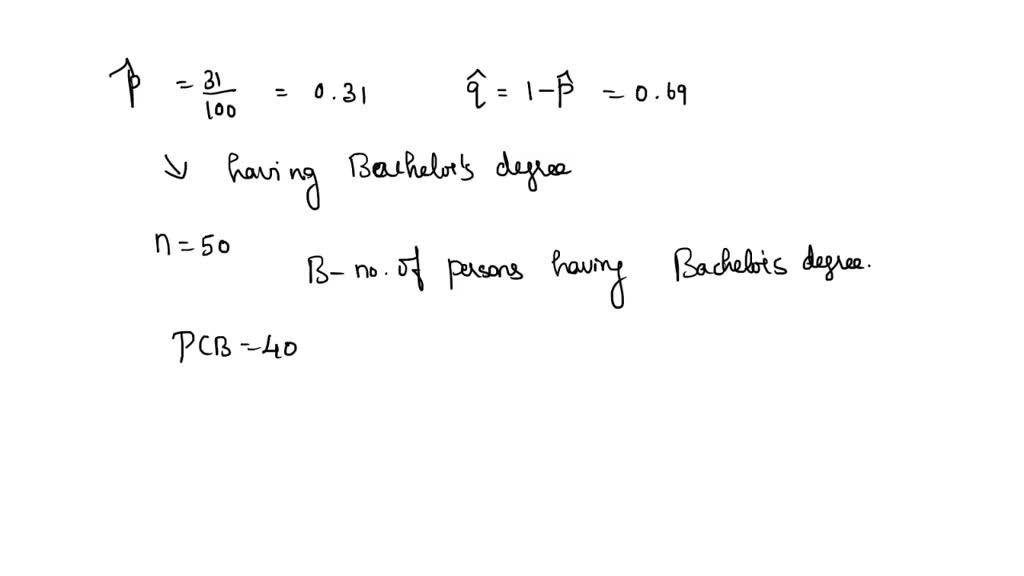 p̂ = 31/100 = 0.31 q̂ = 1-p̂ = 0.69
↘ having Bachelor's degree
n = 50
B- no. of persons having Bachelor's degree.
P(B = 40